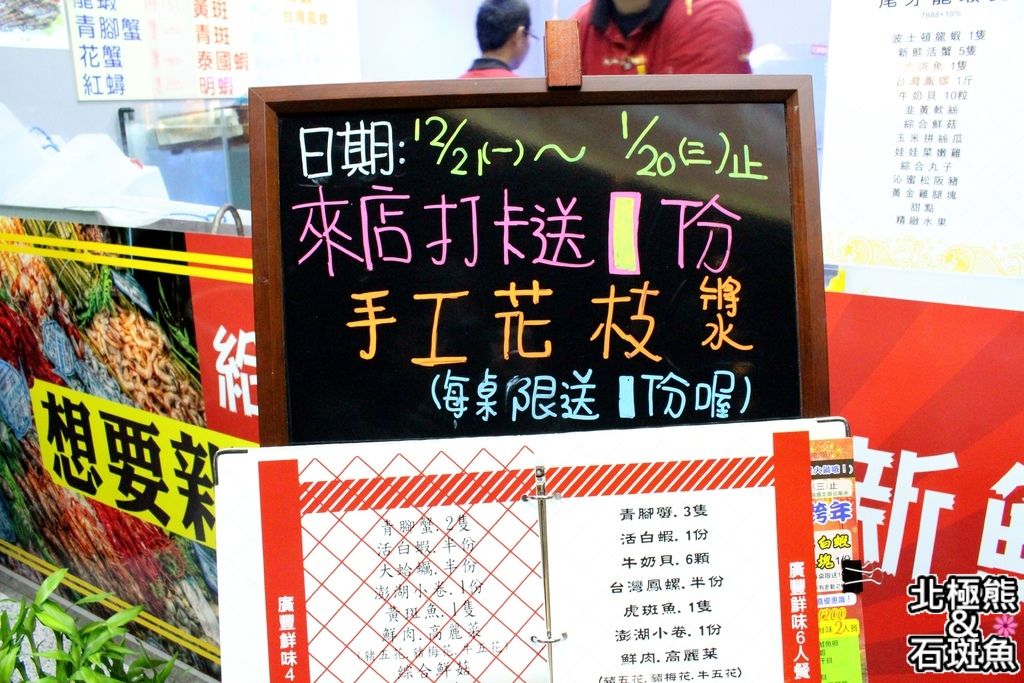 龍蝦
青腳蟹
花蟹
紅蟳
黃斑
青斑
泰國蝦
明蝦
台灣鳳螺
7888+10%
波士頓龍蝦 1隻
新鮮活蟹 5隻
虎斑魚 1隻
台灣鳳螺 1斤
牛奶貝 10粒
韭黃軟絲
綜合鮮菇
玉米拼絲瓜
娃娃菜嫩雞
綜合丸子
沁蜜松阪豬
黃金雞腿塊
甜點
精緻水果
日期: 12/21(一) ～ 1/20(三)止
來店打卡送1份
手工花枝漿
(每桌限送1份喔)
給
想要新
新魚
青腳蟹.2隻
活白蝦.半份
大蛤蠣.半份
澎湖小卷.1份
黃斑魚.1隻
鮮肉.高麗菜
(豬五花.豬梅花.牛五花)
綜合鮮菇
廣豐鮮味4
青腳蟹.3隻
活白蝦.1份
牛奶貝.6顆
台灣鳳螺.半份
虎斑魚.1隻
澎湖小卷.1份
鮮肉.高麗菜
(豬五花.豬梅花.牛五花)
廣豐鮮味6人餐
(三)止
跨年
白蝦
北極熊
&
石斑魚